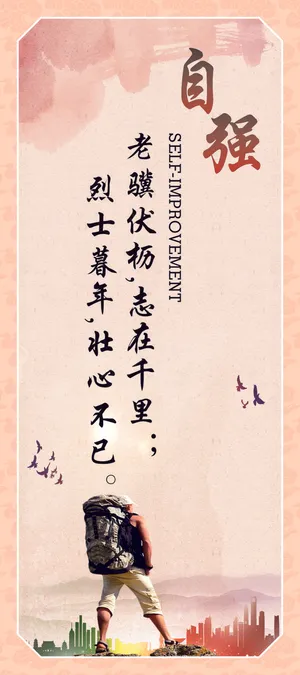 自强
SELF-IMPROVEMENT
老骥伏枥,志在千里;
烈士暮年,壮心不已。